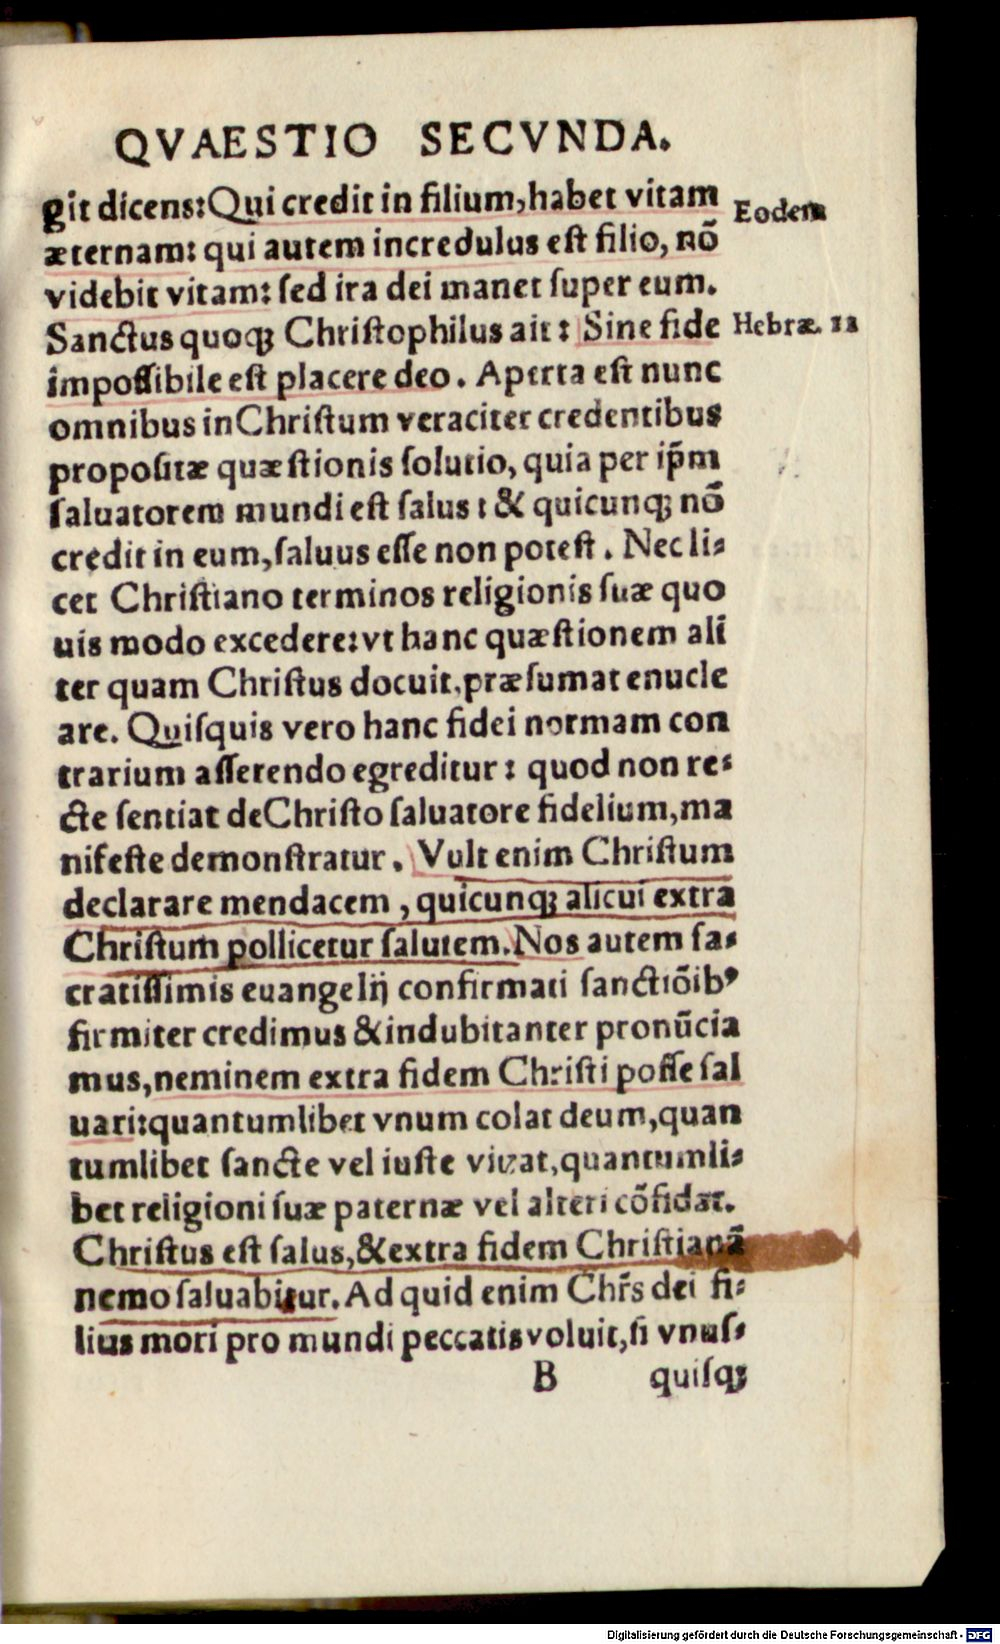 QVAESTIO SECVNDA.
git dicens: Qui credit in filium, habet vitam
Eodem
æternam: qui autem incredulus eſt filio, nõ
videbit vitam: ſed ira dei manet ſuper eum.
Sanctus quoqꝫ Chriſtophilus ait: Sine fide
Hebræ. 11
impoſſibile eſt placere deo. Aperta eſt nunc
omnibus in Chriſtum veraciter credentibus
propoſitæ quæſtionis ſolutio, quia per ip̃m
ſaluatorem mundi eſt ſalus: & quicunqꝫ nõ
credit in eum, ſaluus eſſe non poteſt. Nec li⸗
cet Chriſtiano terminos religionis ſuæ quo
uis modo excedere: vt hanc quæſtionem ali
ter quam Chriſtus docuit, præſumat enucle
are. Quiſquis vero hanc fidei normam con
trarium aſſerendo egreditur: quod non re⸗
cte ſentiat de Chriſto ſaluatore fidelium, ma
nifeſte demonſtratur. Vult enim Chriſtum
declarare mendacem, quicunqꝫ alicui extra
Chriſtum pollicetur ſalutem. Nos autem ſa⸗
cratiſſimis euangelij confirmati ſanctiõibꝰ
firmiter credimus & indubitanter pronũcia
mus, neminem extra fidem Chriſti poſſe ſal
uari: quantumlibet vnum colat deum, quan
tumlibet ſancte vel iuſte vivat, quantumli⸗
bet religioni ſuæ paternæ vel alteri cõfidat.
Chriſtus eſt ſalus, & extra fidem Chriſtianã
nemo ſaluabitur. Ad quid enim Chr̃s dei fi⸗
lius mori pro mundi peccatis voluit, ſi vnuſ⸗
B quiſqꝫ
Digitalisierung gefördert durch die Deutsche Forschungsgemeinschaft - DFG